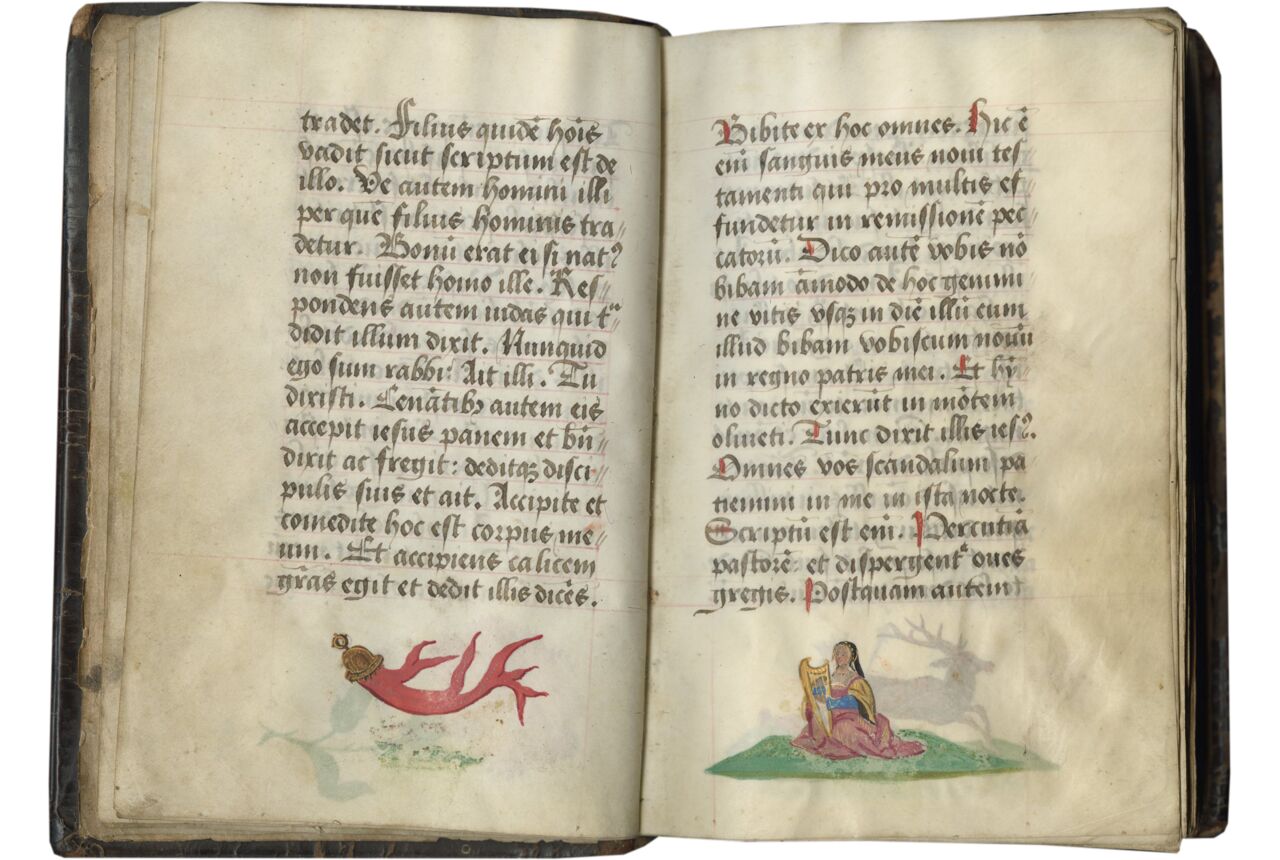 tradet. Filius quidē hoīs
vadit sicut scriptum est de
illo. Ve autem homini illi
per quē filius hominis tra//
detur. Bonū erat ei si natꝰ
non fuisset homo ille. Res//
pondens autem iudas qui tᵃ//
didit illum dixit. Nunquid
ego sum rabbi: Ait illi. Tu
dixisti. Cenātibꝫ autem eis
accepit iesus panem et bn̄//
dixit ac fregit: deditqꝫ disci//
pulis suis et ait. Accipite et
comedite hoc est corpus me//
um. Et accipiens calicem
grās egit et dedit illis dicēs.
Bibite ex hoc omnes. Hic ē
enī sanguis meus noui tes//
tamenti qui pro multis ef//
fundetur in remissionē pec//
catorū. Dico autē vobis nō
bibam āmodo de hoc genimi//
ne vitis vsqꝫ in diē illū cum
illud bibam vobiscum nouū
in regno patris mei. Et hȳ//
no dicto exierūt in mōtem
oliueti. Tunc dixit illis iesꝰ.
Omnes vos scandalum pa//
tiemini in me in ista nocte.
Scriptū est enī. Percutiā
pastorē: et dispergentᷣ oues
gregis. Postquam autem